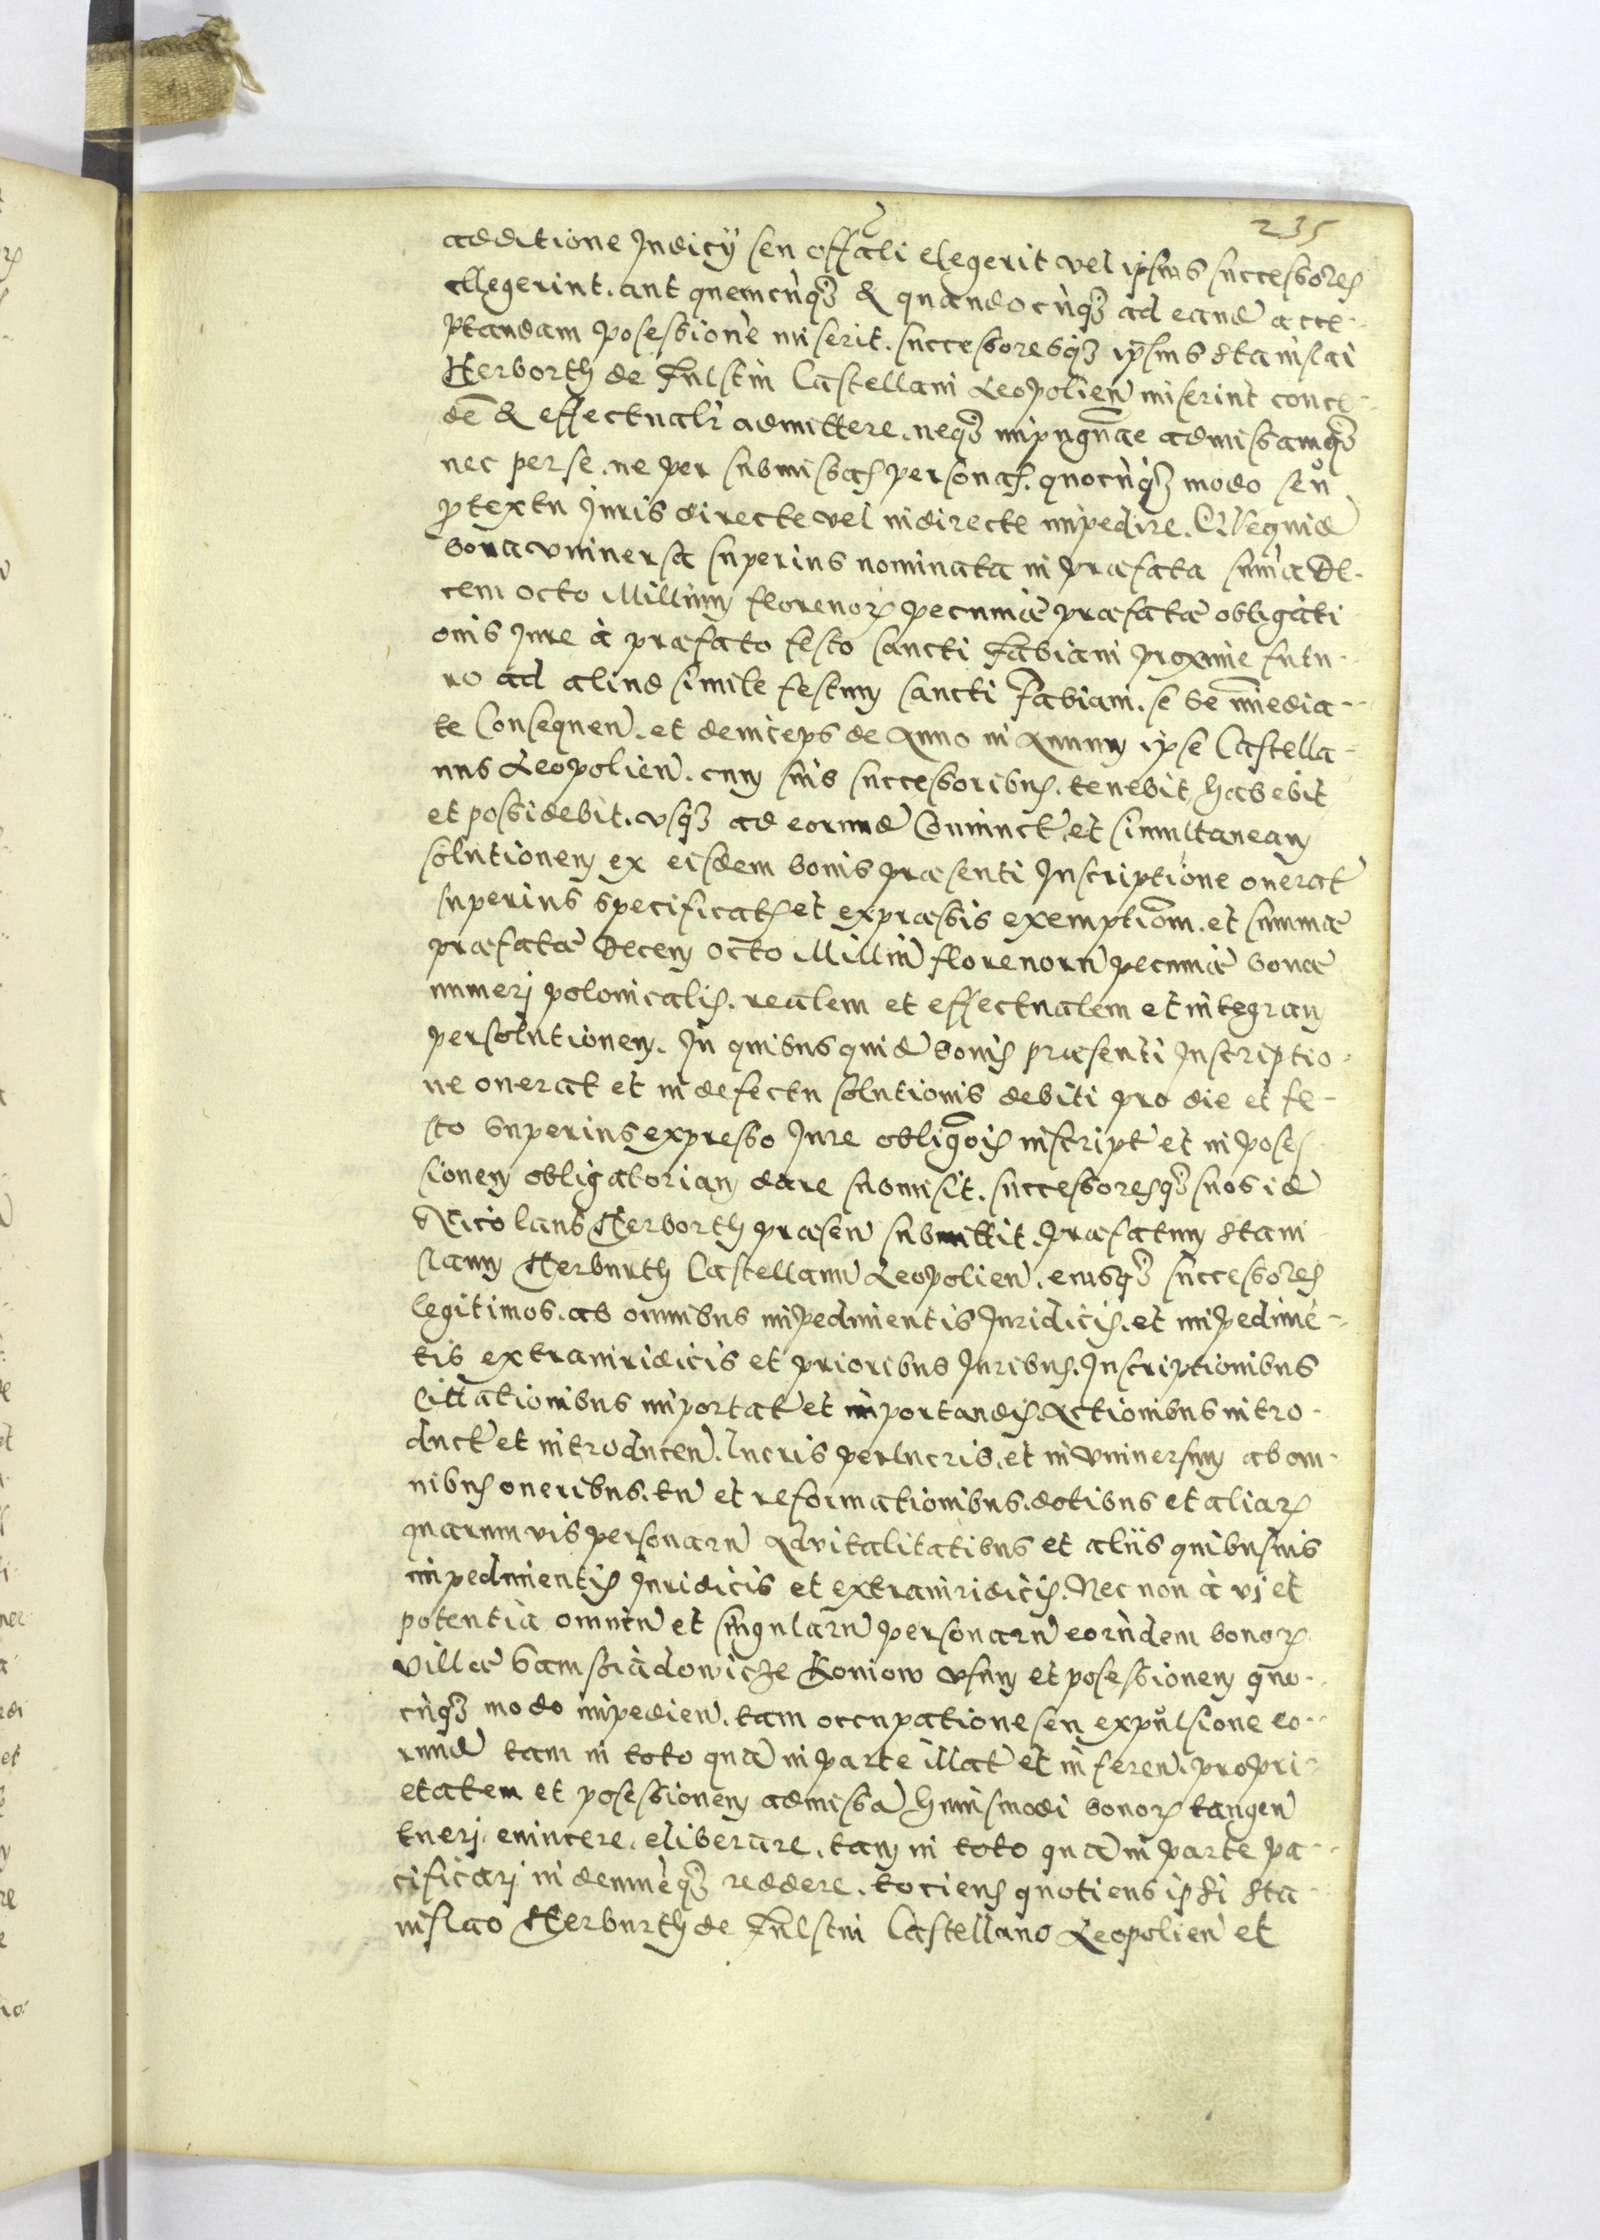 235
additione Judicÿ seu offali elegerit vel ipsius successores
ellegerint. aut quemcunq3 & quandocunq3 ad eand acce-
ptandam posessione miserit. successoresq3 ipsius Stanislai
Herborth de Fulstin Castellani Leopolien miserint conce-
dē & effectualr admittere. neq3 impugnāe admissamq3
nec per se. ne per submissas personas. quocunq3 modo seu
ptextu Juris directe vel indirecte impedire. Que quid
bona vniuersa superius nominata in præfata suma De-
cem octo Millium florenor pecuniæ præfatæ obligati
onis Jure à præfato festo sancti Fabiani proxime futu-
ro ad aliud simile festum sancti Fabiani. se se imedia-
te Consequen. et deinceps de Anno in Annum ipse Castella-
nus Leopolien. cum suis successoribus. tenebit, habebit
et possidebit. vsq3 ad eorund Coniunct et simultaneam
solutionem ex eisdem bonis præsenti Inscriptione onerat
superius specificatis et expræssis exemptiom. et summæ
præfatæ Decem octo Milliu florenoru pecuniæ bonæ
numeri polonicalis. realem et effectualem et integram
persolutionem. In quibus quid bonis præsenti Inscriptio-
ne onerat et in defectu solutionis debiti pro die et fe-
sto superius expresso Jure obligōis inscript et in poses
sionem obligatoriam dare submisit. successoresq3 suos id
Nicolaus Herborth præsen submittit. præfatum Stani
slaum Herburth Castellanu Leopolien. eiusq3 successores
legitimos. ab omnibus impedimentis Juridicis. et impedime-
tis extraiuridicis et prioribus Juribus. Inscriptionibus
Cittationibus importat et importandis. Actionibus intro-
duct et introducen. lucris perlucris. et in vniuersum ab om-
nibus oneribus. tu et reformationibus. dotibus et aliar
quarumvis personaru Advitalitatibus et aliis quibusuis
impedimentis Juridicis et extraiuridicis. Nec non à vi et
potentia omniu et singularu personaru eorundem bonor
villæ Samsciadowicze Koniow vsum et posessionem quo-
cunq3 modo impedien. tam occupatione seu expulsione eo-
rund tam in toto qua in parte illat et inferen. propri-
etatem et posessionem admissa huiusmodi bonor tangen
tueri. euincere. eliberare. tam in toto qua in parte pa-
cificari indemneq3 reddere. tociens quotiens ipsi Sta-
nislao Herburth de Fulstin Castellano Leopolien et